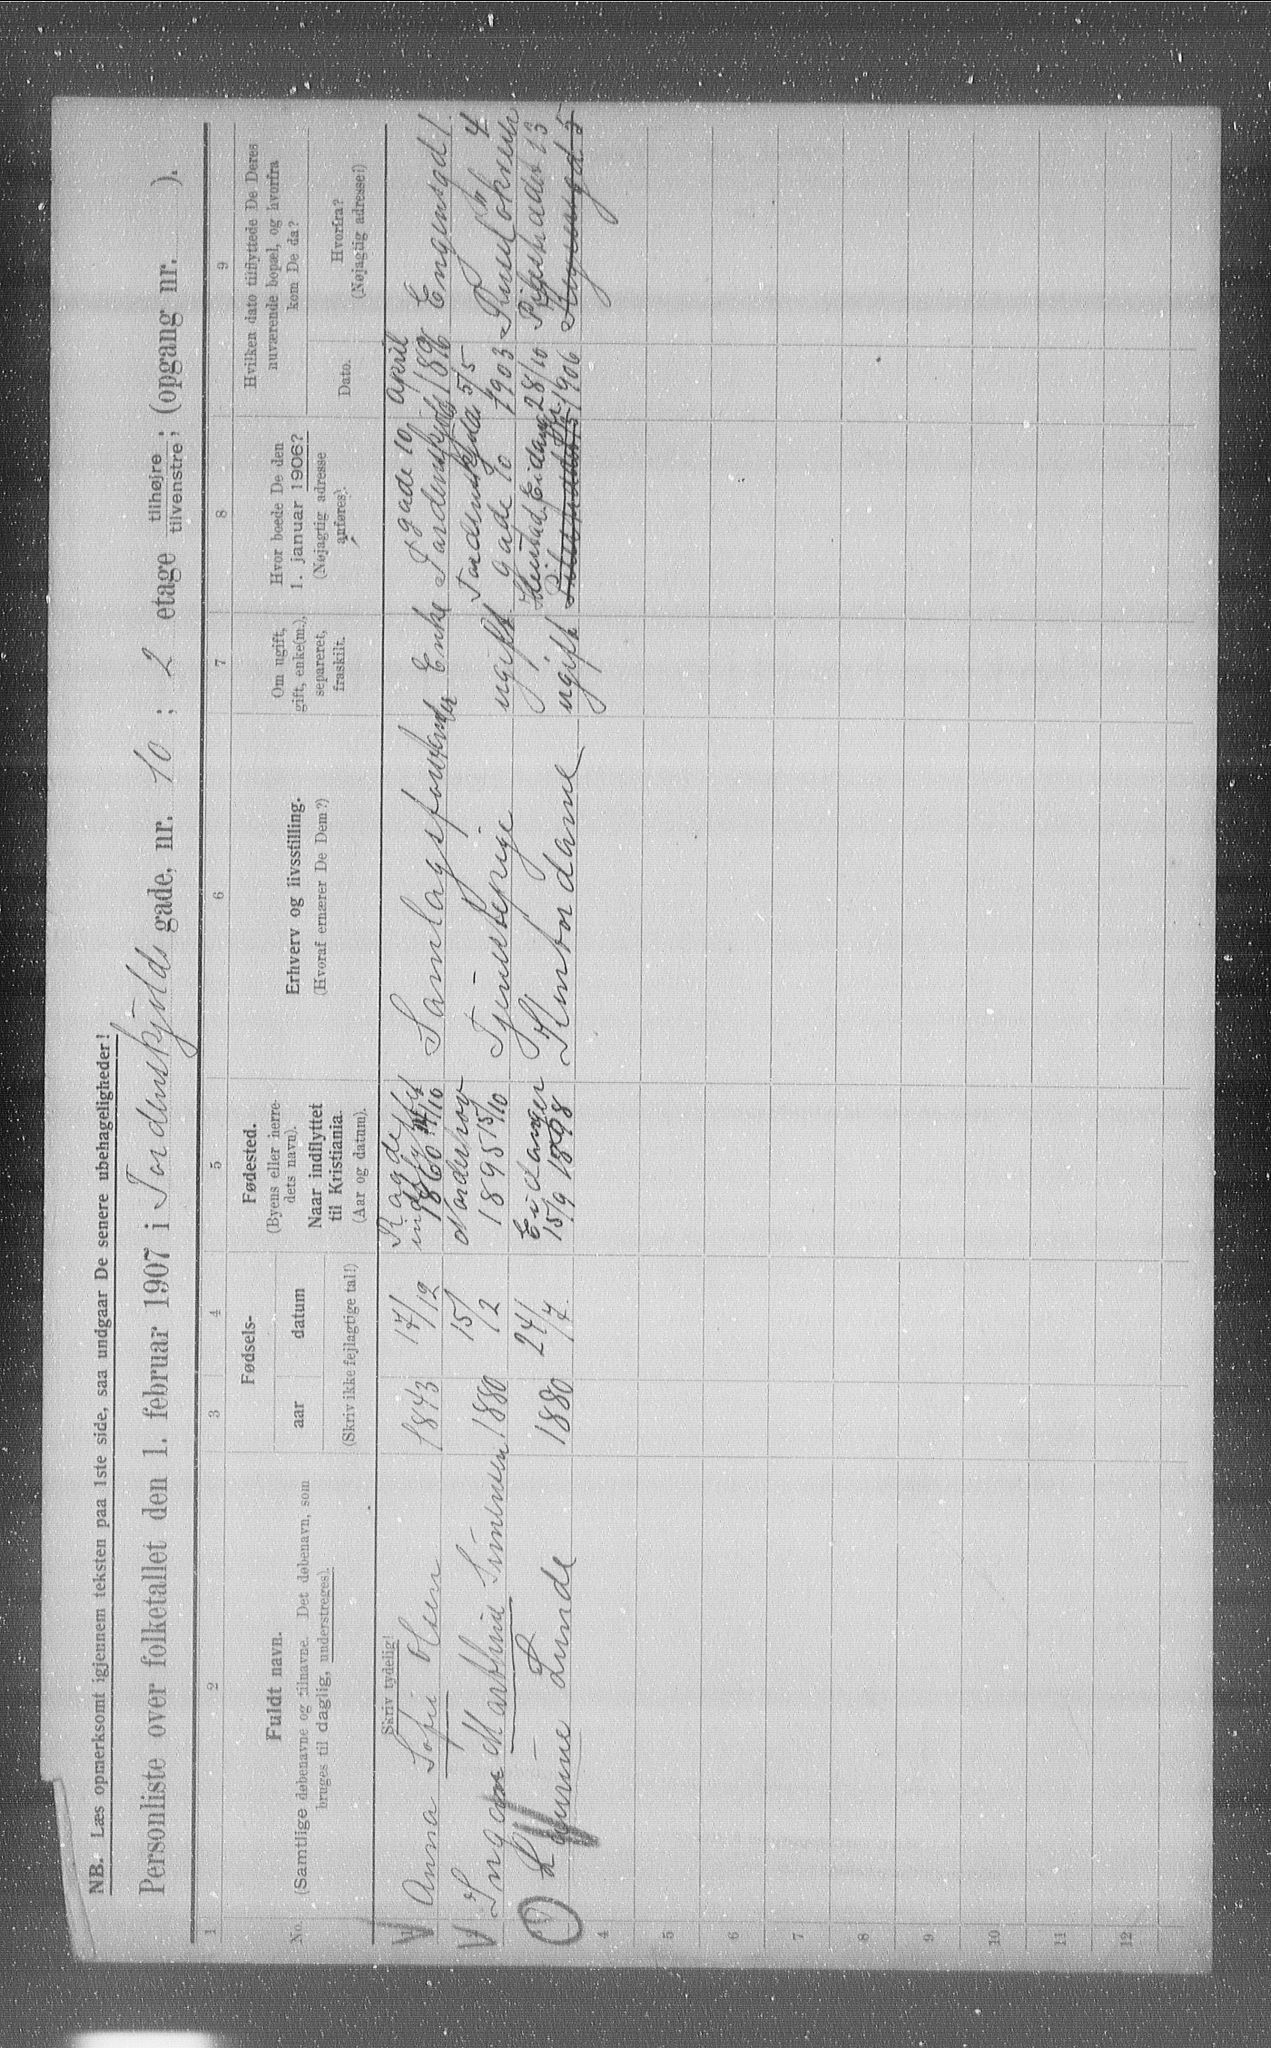 NB. Læs opmerksomt igjennem teksten paa 1ste side, saa undgaar De senere ubehageligheder!
Personliste over folketallet den 1. februar 1907 i Tordenskjolds gade, nr. 10; 2 etage tilhøjre tilvenstre; (opgang nr. ).
1 2 3 4 5 6 7 8 9
No.
Fuldt navn.
(Samtlige døbenavne og tilnavne. Det døbenavn, som
bruges til daglig, understreges).
Fødsels-
aar datum
(Skriv ikke fejlagtige tal!)
Fødested.
(Byens eller herre-
dets navn).
Naar indflyttet
til Kristiania.
(Aar og datum).
Erhverv og livsstilling.
(Hvoraf ernærer De Dem?)
Om ugift,
gift, enke(m.),
separeret,
fraskilt.
Hvor boede De den
1. januar 1906?
(Nøjagtig adresse
anføres).
Hvilken dato tilflyttede De Deres
nuværende bopæl, og hvorfra
kom De da?
Dato.
Hvorfra?
(Nøjagtig adresse!)
Skriv tydelig!
Anna Sofie Olsen 1843 17/12 Enke Tordenskjolds gade 10 april
Mathilde Simensen 1880 15/2 Norderhov 1895 15/10 Tjenestepige ugift Tordenskjolds gade 10 5/5 1903
Laurine Lunde 1880 24/7 Eidanger 15/9 1898 Kontordame ugift Eidanger 28/10 1906 Pilestrædet 13
4
5
6
7
8
9
10
11
12